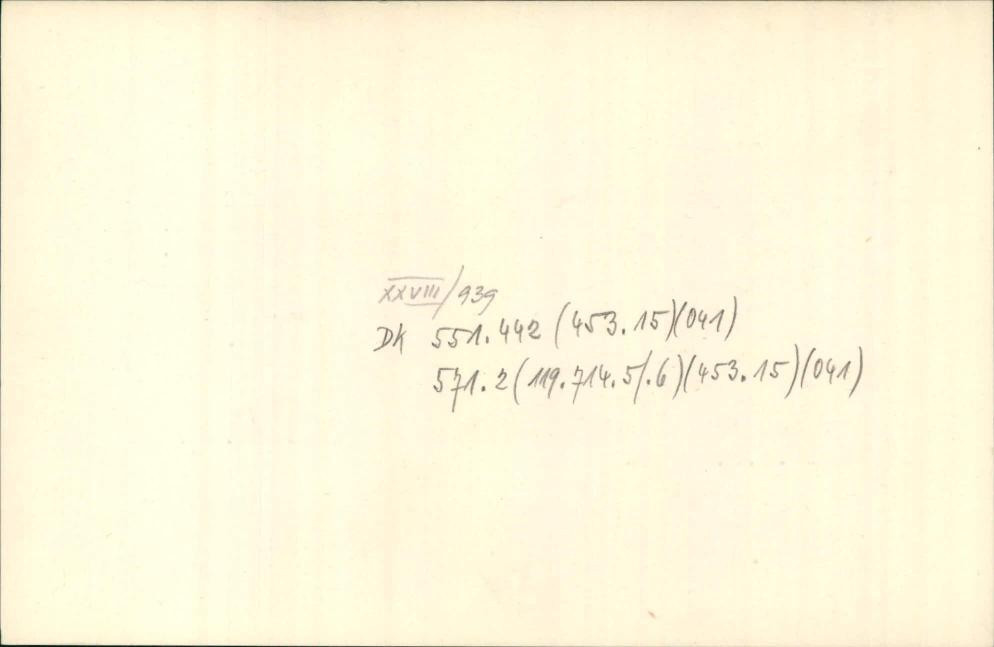 XXVIII/939
DK 551.442 (453.15)(041)
571.2(119.714.5/.6)(453.15)(041)